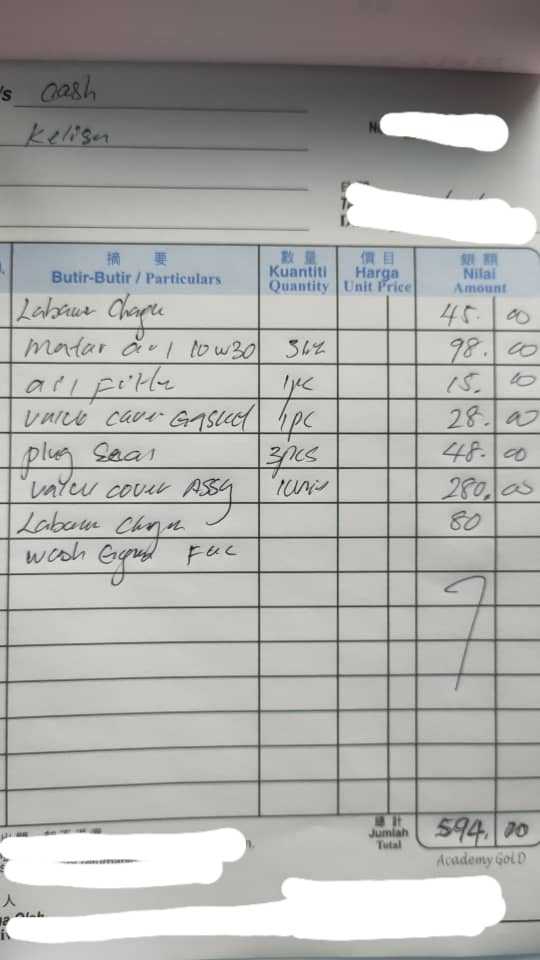 /s Cash
Kelisa
N
摘 要 數 量 價 目 銀 額
Butir-Butir / Particulars Kuantiti Quantity Harga Unit Price Nilai Amount
Labaur Chage 45. 00
motar oil 10w30 98. 00
oil Filte 1pc 15. 00
valve cover Gasket 1pc 28. 00
plug 3pcs 48. 00
valve cover ASSY 1unit 280. 00
Labaur Chage 80
wash Fuc
總 計
Jumlah
Total 594. 00
Academy GoLD
人